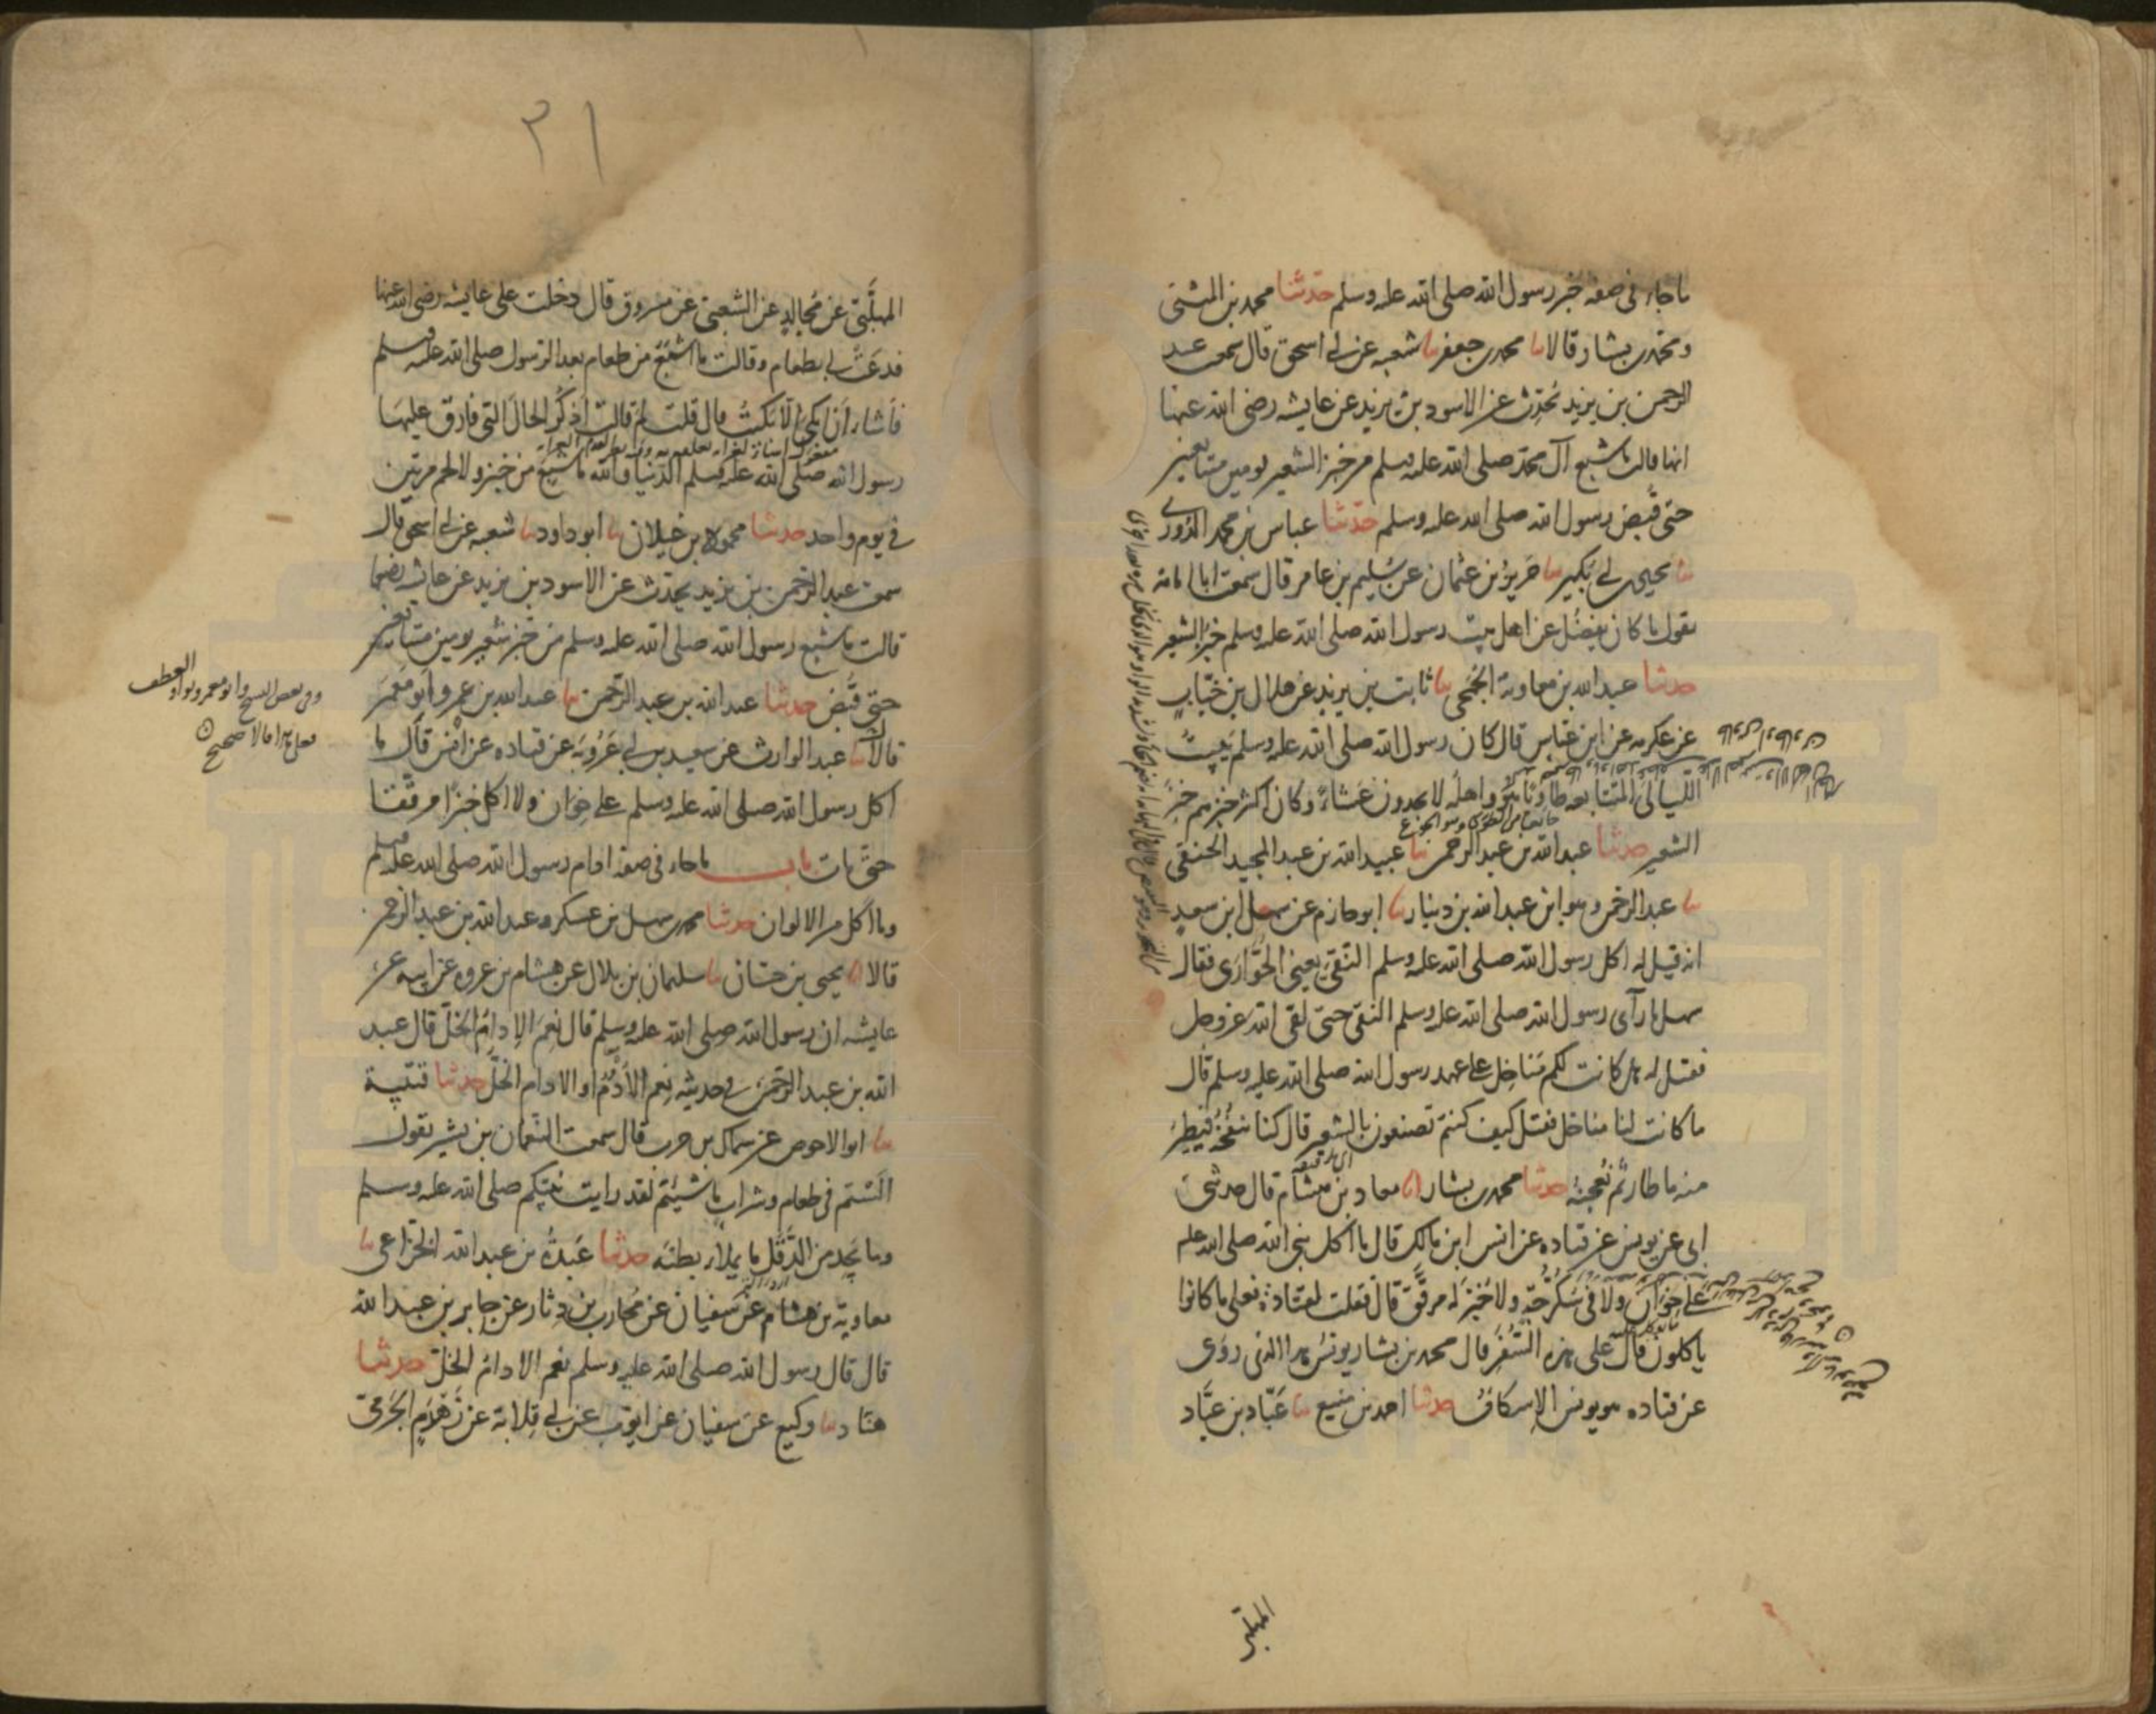 ما جاء في صفة خبز رسول الله صلى الله عليه وسلم حدثنا محمد بن المثنى
ومحمد بن بشار قالا ثنا محمد بن جعفر ثنا شعبه عن ابي اسحق قال سمعت عبد
الرحمن بن يزيد يحدث عن الاسود بن يزيد عن عايشه رضى الله عنها
انها قالت ما شبع آل محمد صلى الله عليه وسلم من خبز الشعير يومين متتابعين
حتى قبض رسول الله صلى الله عليه وسلم حدثنا عباس بن محمد الدوري
ثنا يحيى بن ابي بكير ثنا حريز بن عثمان عن سليم بن عامر قال سمعت ابا امامة
يقول ما كان يفضل عن اهل بيت رسول الله صلى الله عليه وسلم خبز الشعير
حدثنا عبد الله بن معاوية الجمحي ثنا ثابت بن يزيد عن هلال بن خباب
عن عكرمه عن ابن عباس قال كان رسول الله صلى الله عليه وسلم يبيت
الليالي المتتابعه طاويا هو واهله لا يجدون عشاء وكان اكثر خبزهم خبز
الشعير حدثنا عبد الله بن عبد الرحمن ثنا عبيد الله بن عبد المجيد الحنفي
ثنا عبد الرحمن وهو ابن عبد الله بن دينار ثنا ابو حازم عن سهل ابن سعيد
انه قيل له اكل رسول الله صلى الله عليه وسلم النقي يعني الحوارى فقال
سهل ما رآى رسول الله صلى الله عليه وسلم النقي حتى لقى الله عز وجل
فقيل له هل كانت لكم مناخل على عهد رسول الله صلى الله عليه وسلم قال
ما كانت لنا مناخل فقيل كيف كنتم تصنعون بالشعير قال كنا ننفخه فيطير
منه ما طار ثم نعجنه حدثنا محمد بن بشار انا معاذ بن هشام قال حدثني
ابي عن يونس عن قتاده عن انس ابن مالك قال ما اكل نبي الله صلى الله عليه
على خوان ولا في سكرجة ولا خبز له مرقق قال فقلت لقتادة فعلى ما كانوا
ياكلون قال على هذه السفر قال محمد بن بشار يونس هذا الذي روى
عن قتاده هو يونس الاسكاف حدثنا احمد بن منيع ثنا عباد بن عباد
المهلبي
٣١
المهلبي عن مجالد عن الشعبي عن مسروق قال دخلت على عايشه رضى الله عنها
فدعت لي بطعام وقالت ما اشبع من طعام بعد الرسول صلى الله عليه وسلم
فأشاء ان ابكي الا بكيت قال قلت لم قالت اذكر الحال التي فارق عليها
رسول الله صلى الله عليه وسلم الدنيا والله ما شبع من خبز ولا لحم مرتين
في يوم واحد حدثنا محمود بن غيلان ثنا ابو داود ثنا شعبه عن ابي اسحق قال
سمعت عبد الرحمن بن يزيد يحدث عن الاسود بن يزيد عن عايشه
قالت ما شبع رسول الله صلى الله عليه وسلم من خبز شعير يومين متتابعين
حتى قبض حدثنا عبد الله بن عبد الرحمن ثنا عبد الله بن عمرو ابو معمر
قالا ثنا عبد الوارث عن سعيد بن ابي عروبة عن قتاده عن انس قال ما
اكل رسول الله صلى الله عليه وسلم على خوان ولا اكل خبزا مرققا
حتى مات باب ما جاء في صفة ادام رسول الله صلى الله عليه وسلم
وما اكل من الالوان حدثنا محمد بن سهل بن عسكر وعبد الله بن عبد الرحمن
قالا انا يحيى بن حسان ثنا سليمان بن بلال عن هشام بن عروه عن ابيه عن
عايشه ان رسول الله صلى الله عليه وسلم قال نعم الإدام الخل قال عبد
الله بن عبد الرحمن في حديثه نعم الأدم او الادام الخل حدثنا قتيبة
ثنا ابو الاحوص عن سماك بن حرب قال سمعت النعمان بن بشير يقول
الستم في طعام وشراب ما شيئتم لقد رايت نبيكم صلى الله عليه وسلم
وما يجد من الدقل ما يملاء بطنه حدثنا عبدة بن عبد الله الخزاعي ثنا
معاوية بن هشام عن سفيان عن محارب بن دثار عن جابر بن عبد الله
قال قال رسول الله صلى الله عليه وسلم نعم الادام الخل حدثنا
هناد ثنا وكيع عن سفيان عن ايوب عن ابي قلابة عن زهدم الجرمي
وفي بعض النسخ وابو معمر بواو العطف
فعلى هذا قالا صحيح